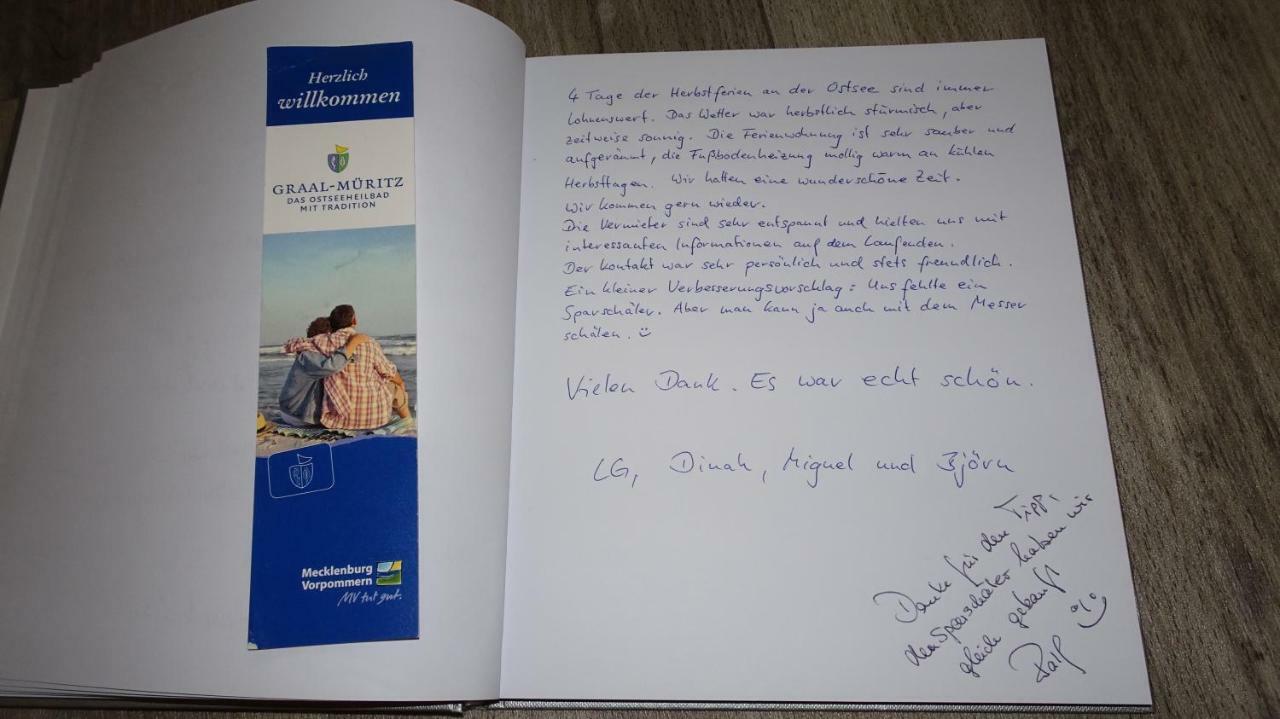 Herzlich
willkommen
GRAAL-MÜRITZ
DAS OSTSEEHEILBAD
MIT TRADITION
Mecklenburg
Vorpommern
MV tut gut.
4 Tage der Herbstferien an der Ostsee sind immer
lohnenswert. Das Wetter war herbstlich stürmisch, aber
zeitweise sonnig. Die Ferienwohnung ist sehr sauber und
aufgeräumt, die Fußbodenheizung mollig warm an kühlen
Herbsttagen. Wir hatten eine wunderschöne Zeit.
Wir kommen gern wieder.
Die Vermieter sind sehr entspannt und hielten uns mit
interessanten Informationen auf dem Laufenden.
Der Kontakt war sehr persönlich und stets freundlich.
Ein kleiner Verbesserungsvorschlag: Uns fehlte ein
Sparschäler. Aber man kann ja auch mit dem Messer
schälen. ☺
Vielen Dank. Es war echt schön.
LG, Dinah, Miguel und Björn
Danke für den Tipp,
den Sparschäler haben wir
gleich gekauft
Ralf